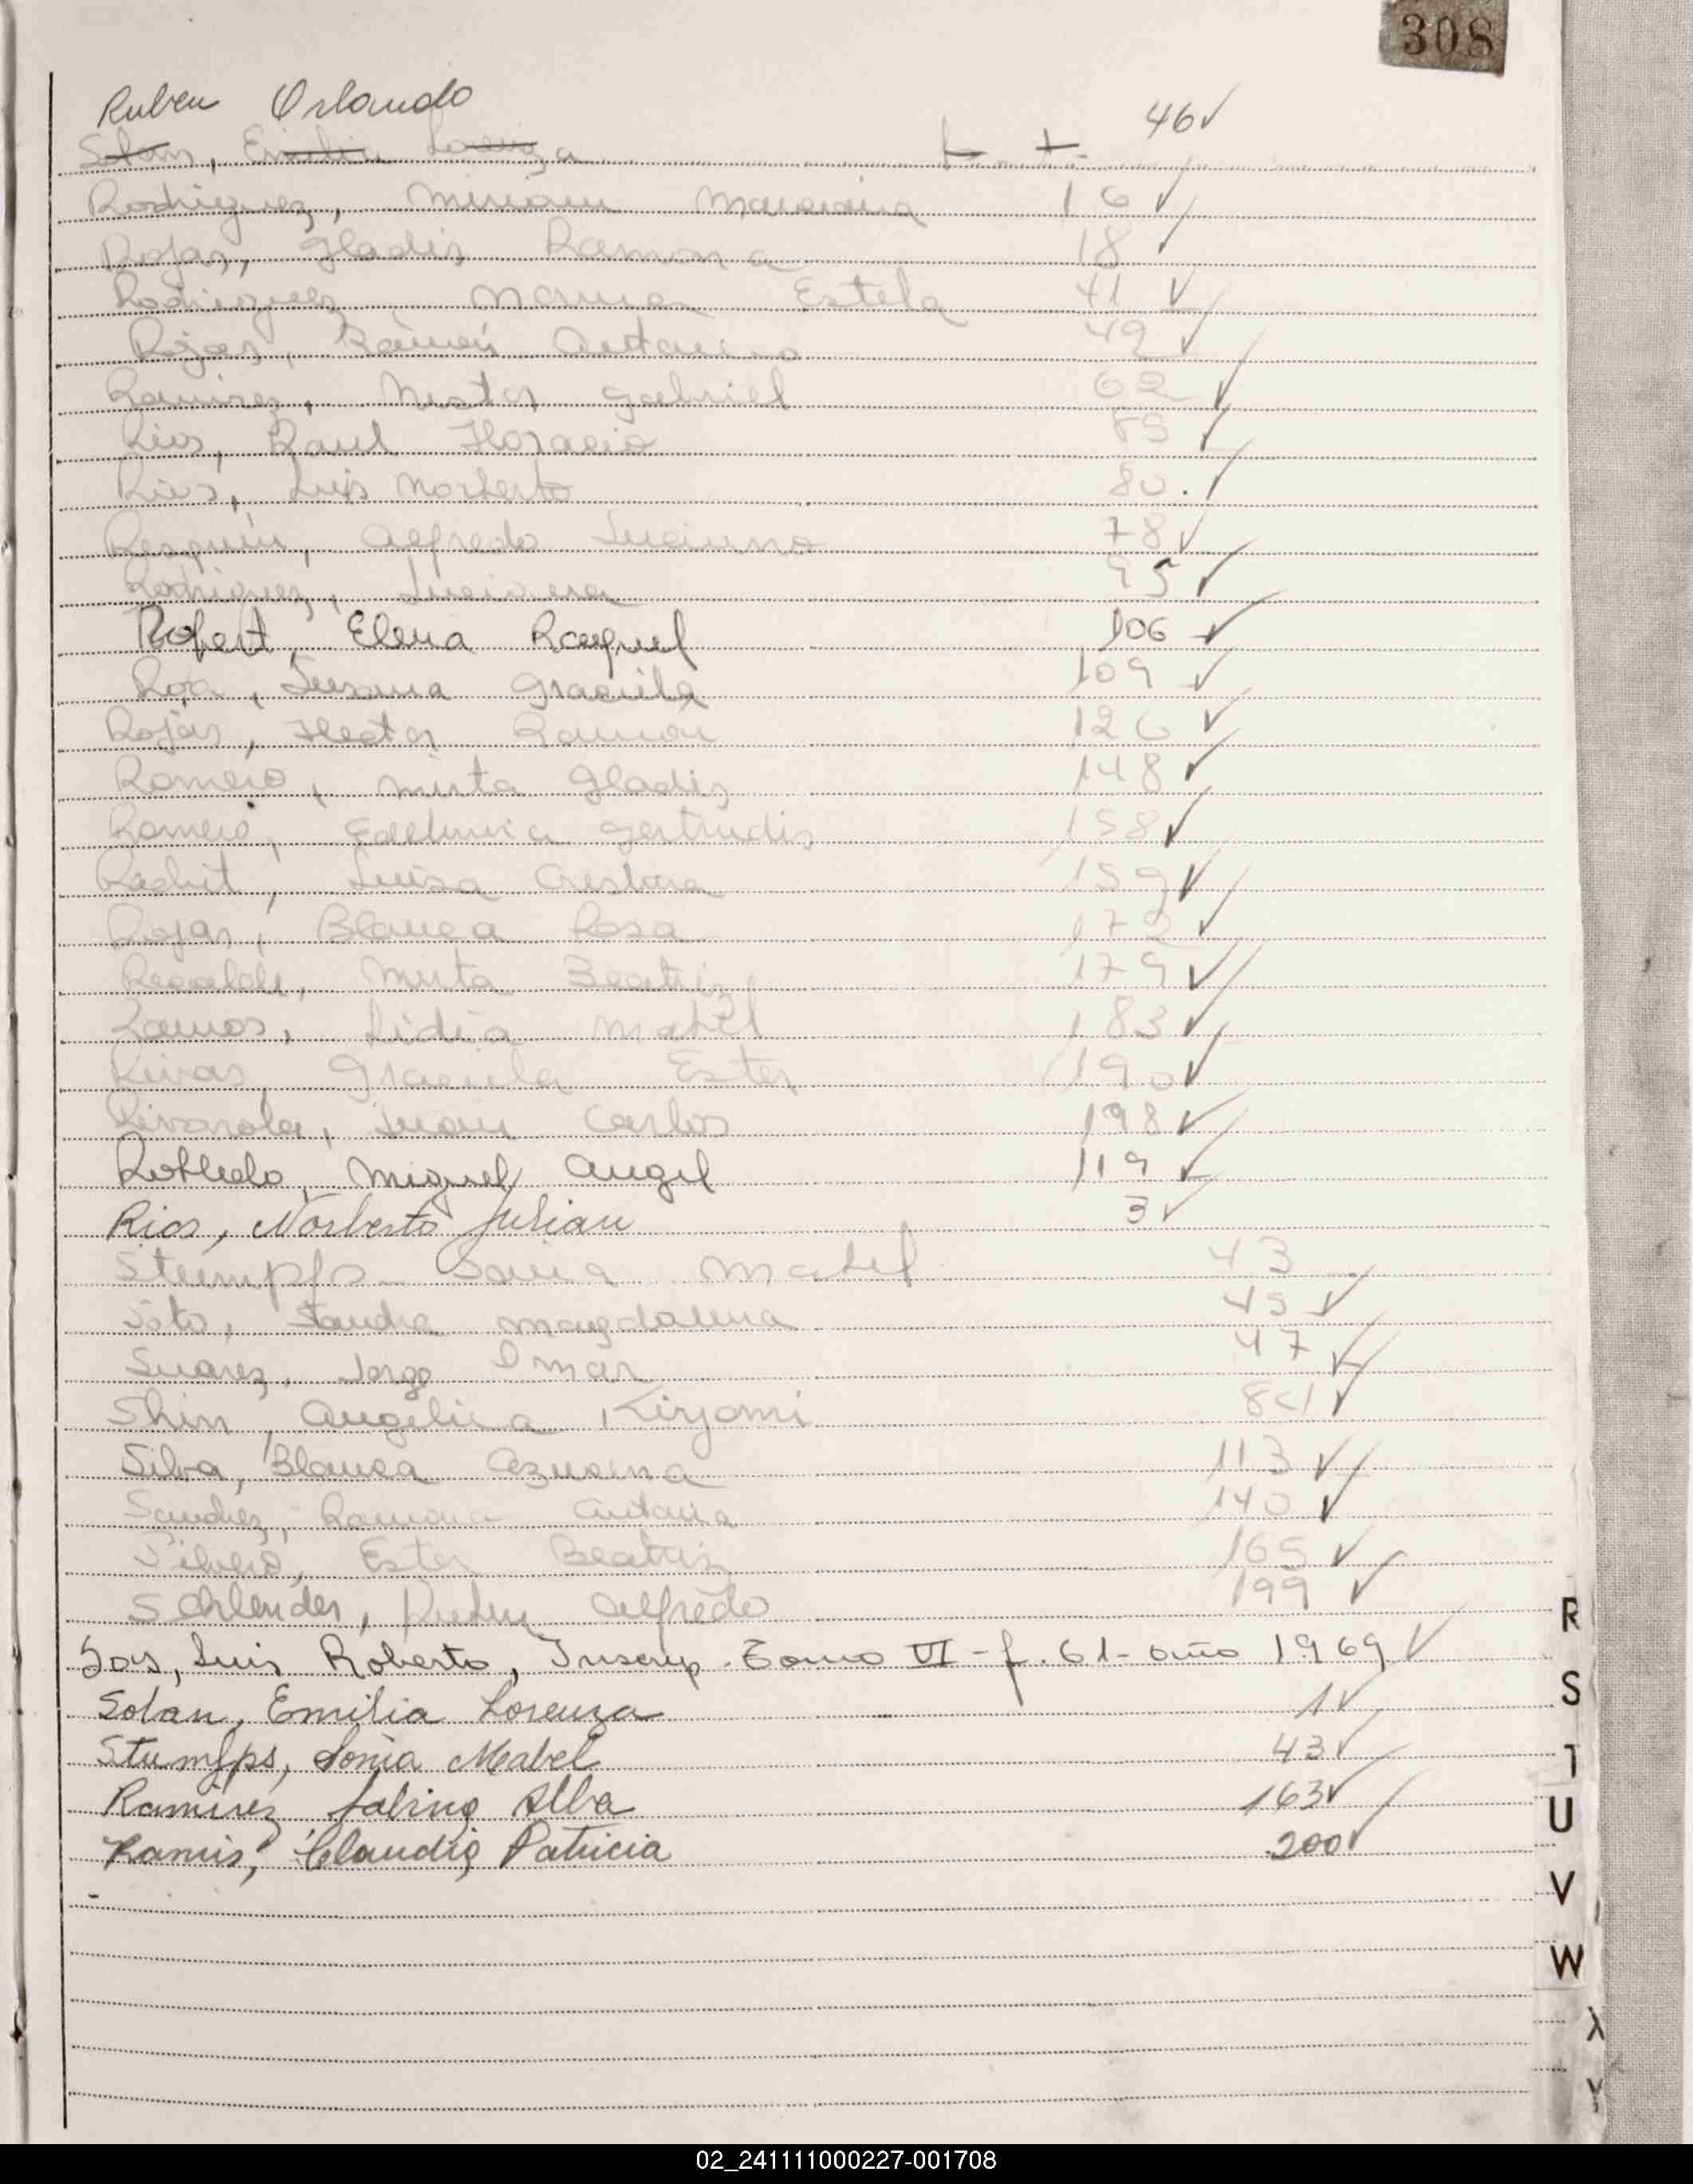 308
Ruben Orlando 46✓
Solan, Emilia Lorenza
Rodriguez, Miriam Marciana 16 ✓
Rojas, Gladis Ramona 18 ✓
Rodriguez, Norma Estela 41 ✓
Rojas, Ramón Antonino 49 ✓
Ramirez, Nestor Gabriel 62 ✓
Rios, Raul Horacio 85 ✓
Rios, Luis Norberto 80. ✓
Resquin, Alfredo Luciano 78 ✓
Rodriguez, Luciana 95 ✓
Robert, Elena Raquel 106 ✓
Roja, Susana Graciela 109 ✓
Rojas, Hector Ramon 126 ✓
Romero, Mirta Gladis 148 ✓
Romero, Edelmira Gertrudis 158 ✓
Luisa 159 ✓
Rojas, Blanca Rosa 172 ✓
Recalde, Mirta Beatriz 179 ✓
Ramos, Lidia Mabel 183 ✓
Rivas, Graciela Ester 190 ✓
Rivarola, Juan Carlos 198 ✓
Robledo, Miguel Angel 119 ✓
Rios, Norberto Julian 3 ✓
Stumpfs Sonia Mabel 43
Soto, Sandra Magdalena 45 ✓
Suarez, Jorge Omar 47 ✓
Shin, Angelica Kiyomi 84 ✓
Silva, Blanca Azucena 113 ✓
Sanchez, Ramona Antonia 140 ✓
Silvero, Ester Beatriz 165 ✓
Schlender, Ruben Alfredo 199 ✓
Sos, Luis Roberto, Inscrip. Tomo VI - f. 61 - año 1969 ✓
Solan, Emilia Lorenza 1 ✓
Stumfps, Sonia Mabel 43 ✓
Ramirez Sabino Alba 163 ✓
Ramis, Claudia Patricia 200 ✓
R
S
T
U
V
W
X
Y
02_241111000227-001708